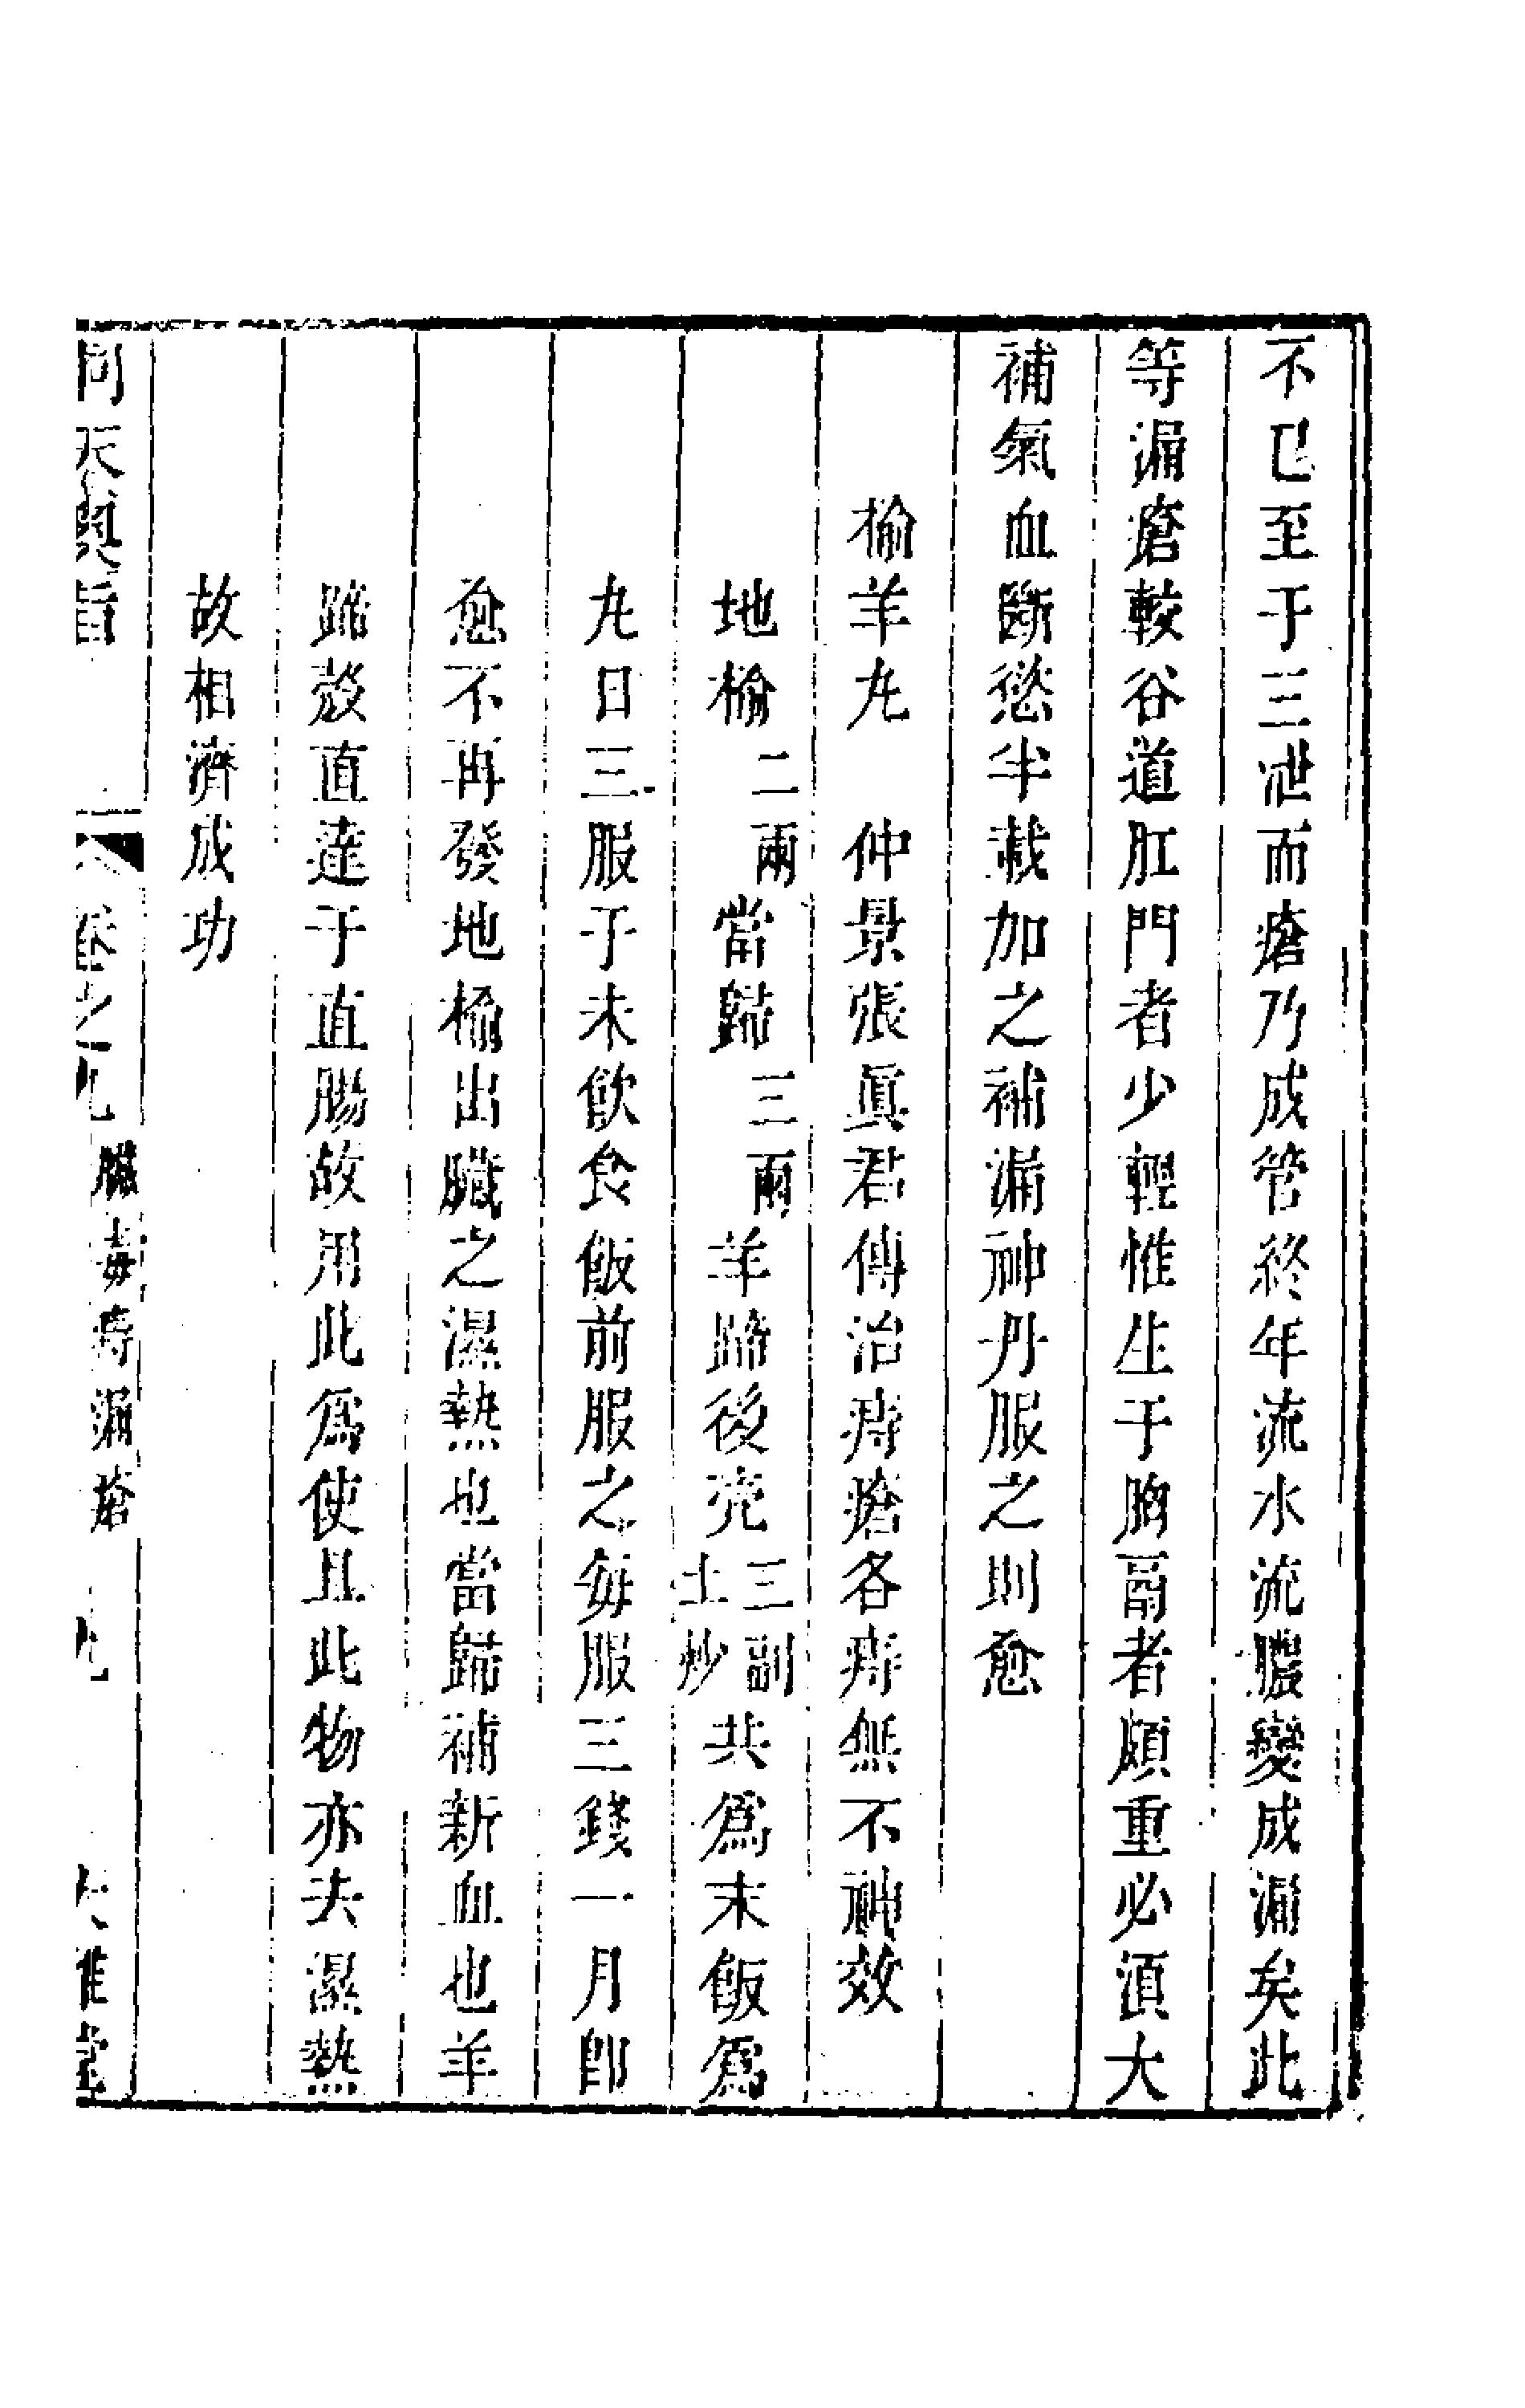 不已至于三泄而瘡乃成管終年流水流膿變成漏矣此
等漏瘡較谷道肛門者少輕惟生于胸鬲者頗重必須大
補氣血斷慾半載加之補漏神丹服之則愈
榆羊丸　仲景張眞君傳治痔瘡各痔無不神效
地榆二兩當歸三兩羊蹄後壳三副土炒共爲末飯爲
丸日三服于未飲食飯前服之每服三錢一月卽
愈不再發地榆出臟之濕熱也當歸補新血也羊
蹄殼直達于直腸故用此爲使且此物亦去濕熱
故相濟成功
洞天奧旨　卷之九　臟毒痔漏瘡　九　大雅堂